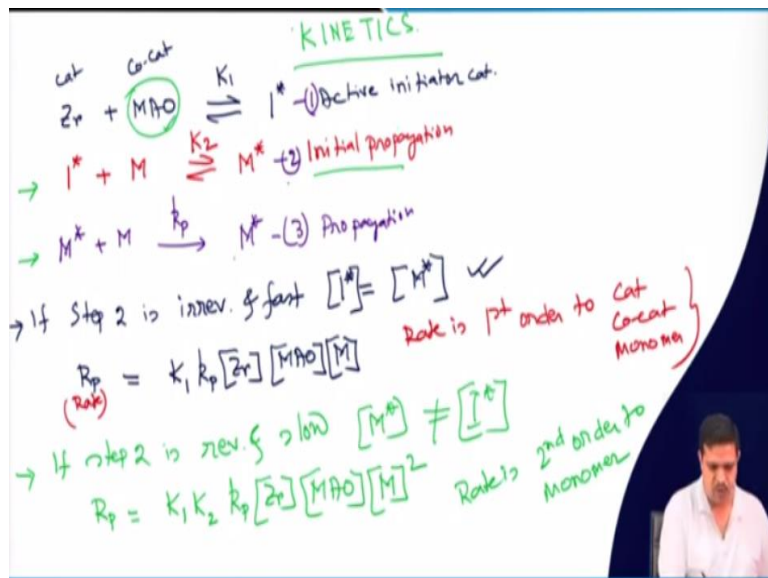 KINETICS.
cat Co-cat
Zr + MAO ⇌ K1 I* -(1) Active initiator cat.
→ I* + M ⇌ K2 M* -(2) Initial propagation
→ M* + M → kp M* -(3) Propagation
→ If Step 2 is irrev. & fast [I*] = [M*] ✓
Rp = K1 kp [Zr] [MAO] [M]
(Rate)
Rate is 1st order to cat
co-cat
monomer
→ If step 2 is rev. & slow [M*] ≠ [I*]
Rp = K1 K2 kp [Zr] [MAO] [M]²
Rate is 2nd order to
monomer